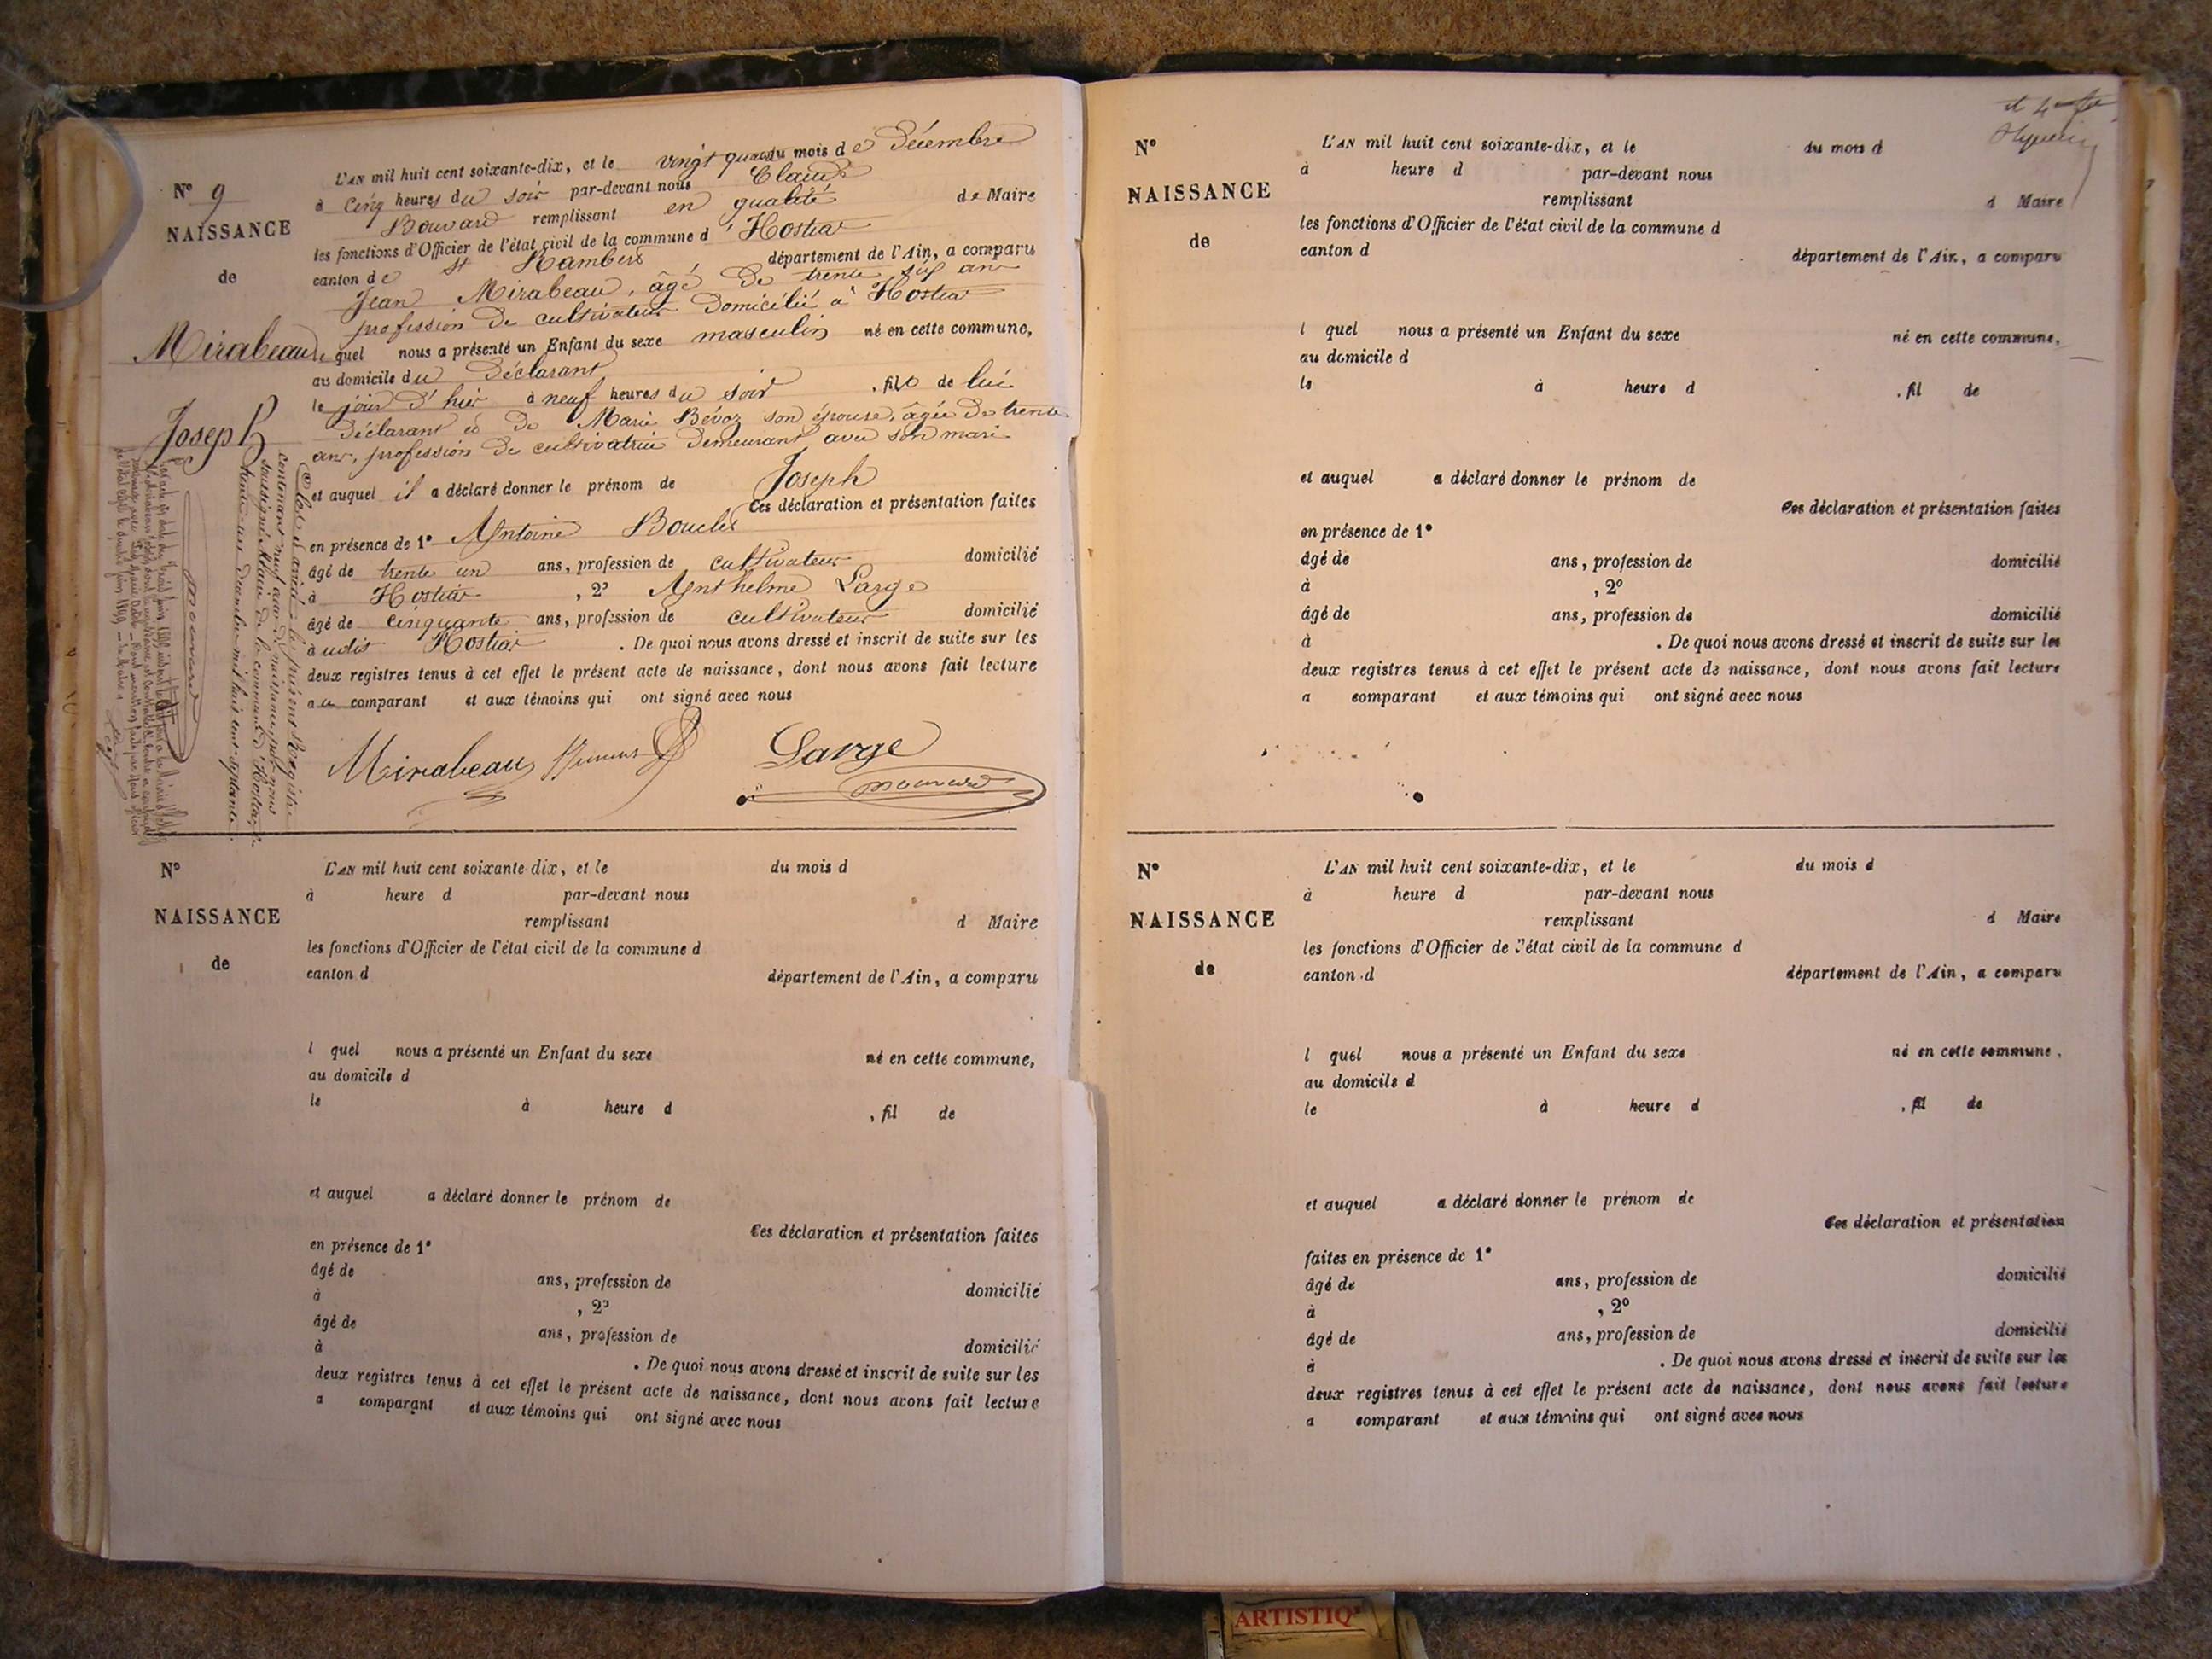 N° 9
NAISSANCE
de
Mirabeau
Joseph
L'AN mil huit cent soixante-dix, et le vingt quatre du mois de Décembre
à cinq heures du soir par-devant nous Claude
Bouvard remplissant en qualité de Maire
les fonctions d'Officier de l'état civil de la commune d'Hostiaz
canton de St Rambert département de l'Ain, a comparu
Jean Mirabeau, âgé de trente six ans
profession de cultivateur domicilié à Hostiaz
lequel nous a présenté un Enfant du sexe masculin né en cette commune,
au domicile du Déclarant
le jour d'hier à neuf heures du soir, fils de lui
Déclarant et de Marie Bévoz son épouse, âgée de trente
ans, profession de cultivatrice demeurant avec son mari
et auquel il a déclaré donner le prénom de Joseph
Ces déclaration et présentation faites
en présence de 1° Antoine
âgé de trente un ans, profession de cultivateur domicilié
à Hostiaz, 2° Anthelme Large
âgé de cinquante ans, profession de cultivateur domicilié
à udit Hostiaz. De quoi nous avons dressé et inscrit de suite sur les
deux registres tenus à cet effet le présent acte de naissance, dont nous avons fait lecture
au comparant et aux témoins qui ont signé avec nous
Mirabeau Large Bouvard
Clos et arrêté le présent Registre
contenant neuf actes de naissance, par nous
soussigné Maire de la commune d'Hostiaz
trente un décembre mil huit cent septante
Bouvard
N°
NAISSANCE
de
L'AN mil huit cent soixante-dix, et le du mois d
à heure d par-devant nous
remplissant d Maire
les fonctions d'Officier de l'état civil de la commune d
canton d département de l'Ain, a comparu
l quel nous a présenté un Enfant du sexe né en cette commune,
au domicile d
le à heure d , fil de
et auquel a déclaré donner le prénom de
Ces déclaration et présentation faites
en présence de 1°
âgé de ans, profession de domicilié
à , 2°
âgé de ans, profession de domicilié
à . De quoi nous avons dressé et inscrit de suite sur les
deux registres tenus à cet effet le présent acte de naissance, dont nous avons fait lecture
a comparant et aux témoins qui ont signé avec nous
N°
NAISSANCE
de
L'AN mil huit cent soixante-dix, et le du mois d
à heure d par-devant nous
remplissant d Maire
les fonctions d'Officier de l'état civil de la commune d
canton d département de l'Ain, a comparu
l quel nous a présenté un Enfant du sexe né en cette commune,
au domicile d
le à heure d , fil de
et auquel a déclaré donner le prénom de
Ces déclaration et présentation faites
en présence de 1°
âgé de ans, profession de domicilié
à , 2°
âgé de ans, profession de domicilié
à . De quoi nous avons dressé et inscrit de suite sur les
deux registres tenus à cet effet le présent acte de naissance, dont nous avons fait lecture
a comparant et aux témoins qui ont signé avec nous
N°
NAISSANCE
de
L'AN mil huit cent soixante-dix, et le du mois d
à heure d par-devant nous
remplissant d Maire
les fonctions d'Officier de l'état civil de la commune d
canton d département de l'Ain, a comparu
l quel nous a présenté un Enfant du sexe né en cette commune,
au domicile d
le à heure d , fil de
et auquel a déclaré donner le prénom de
Ces déclaration et présentation
faites en présence de 1°
âgé de ans, profession de domicilié
à , 2°
âgé de ans, profession de domicilié
à . De quoi nous avons dressé et inscrit de suite sur les
deux registres tenus à cet effet le présent acte de naissance, dont nous avons fait lecture
a comparant et aux témoins qui ont signé avec nous
ARTISTIQ